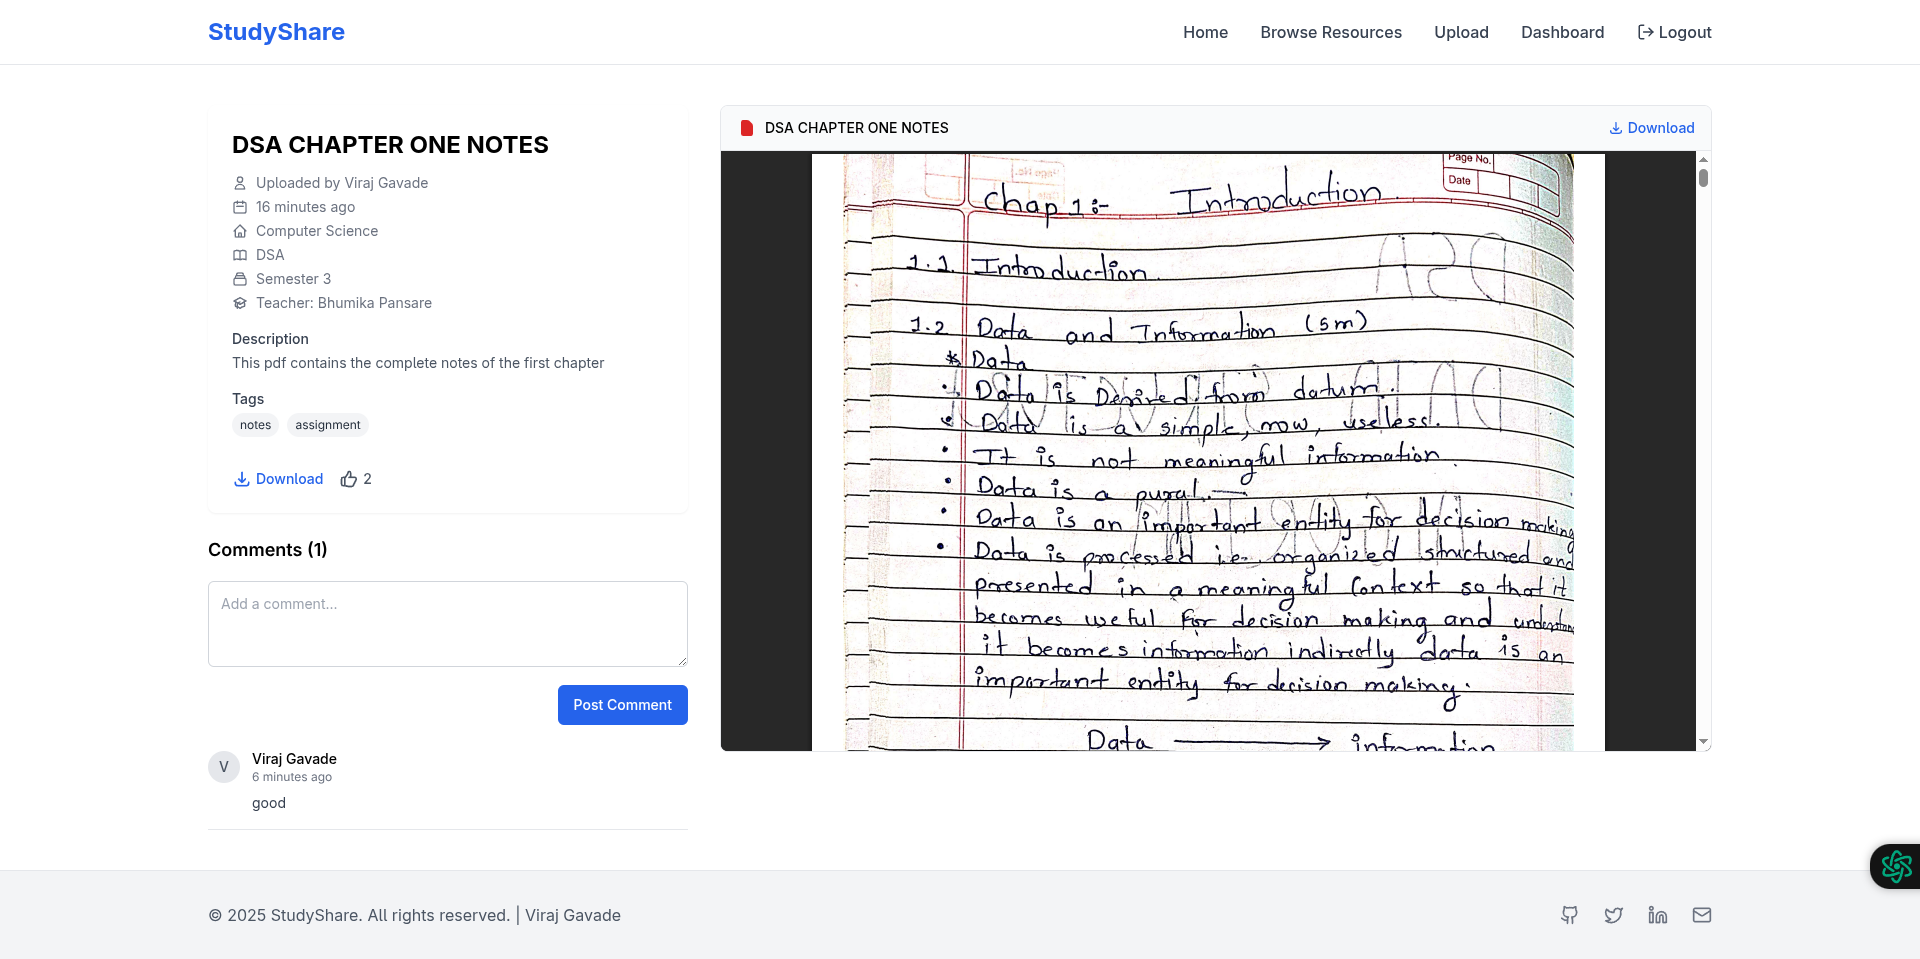 StudyShare
Home
Browse Resources
Upload
Dashboard
Logout
DSA CHAPTER ONE NOTES
Uploaded by Viraj Gavade
16 minutes ago
Computer Science
DSA
Semester 3
Teacher: Bhumika Pansare
Description
This pdf contains the complete notes of the first chapter
Tags
notes
assignment
Download
2
Comments (1)
Add a comment...
Post Comment
V
Viraj Gavade
6 minutes ago
good
DSA CHAPTER ONE NOTES
Download
Page No.
Date
Chap 1:- Introduction
1.1. Introduction.
1.2 Data and Information (5m)
* Data
• Data is Derived from datum.
• Data is a simple, row, useless.
• It is not meaningful information.
• Data is a pural.
• Data is an important entity for decision making
• Data is processed i.e. organized structured and
presented in a meaningful Context so that it
becomes useful for decision making and
it becomes information indirectly data is an
important entity for decision making.
Data → information
© 2025 StudyShare. All rights reserved. | Viraj Gavade